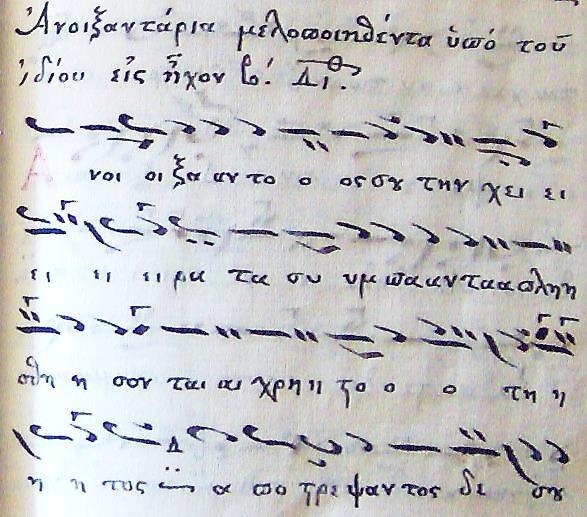 Ἀνοιξαντάρια μελοποιηθέντα ὑπό τοῦ
ἰδίου εἰς ἦχον β΄. Δι.
Α νοι οι ξα αν το ο οσ σου την χει ει
ει ει ει ρα τα συ υμ πα αν τα α πλη η
σθη η σον ται αι χρη η το ο ο τη η
η η τος α πο τρε ψαν τος δε σου